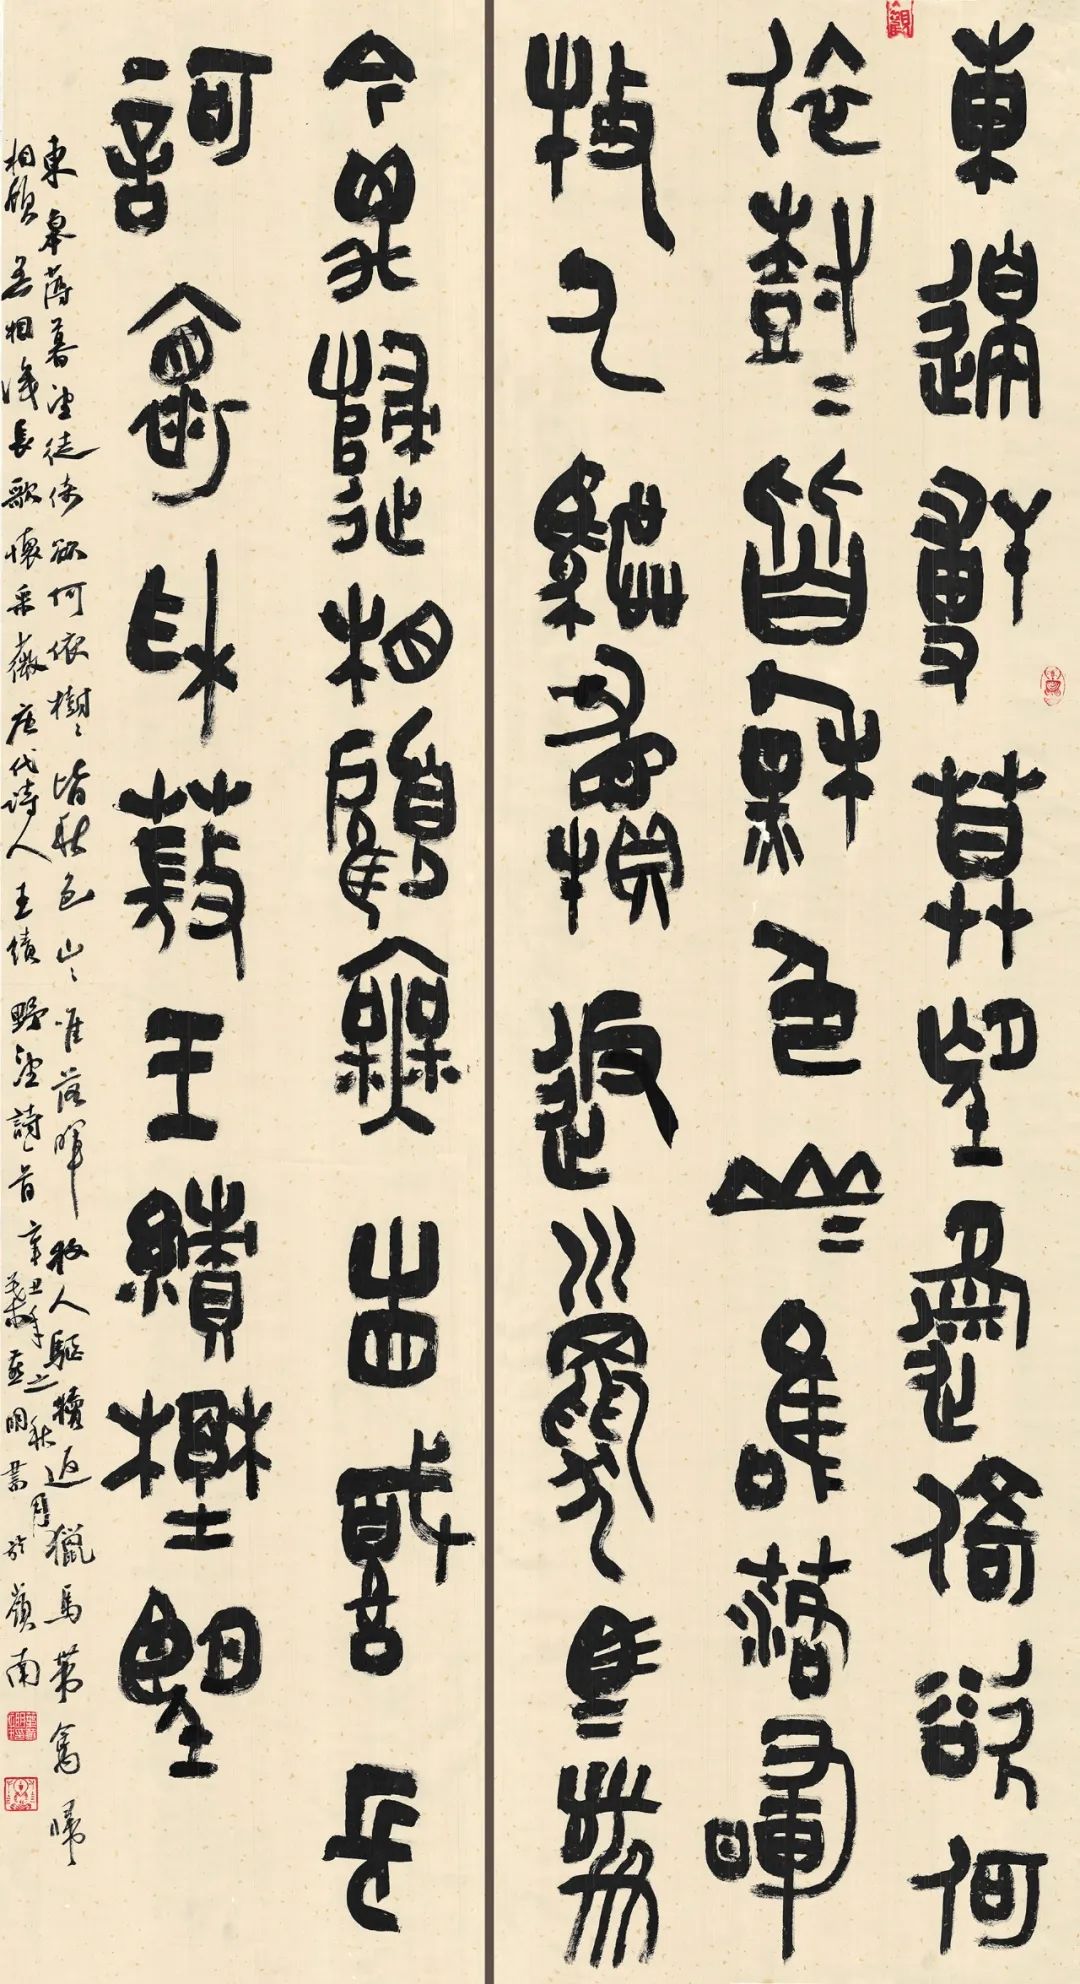 東皋薄暮望徙倚欲何
依樹〻皆秋色山〻唯落暉
牧人驅犢返獵馬帶
禽歸相顧無相識長
歌懷采薇王績野望
東皋薄暮望徙倚欲何依樹〻皆秋色山〻唯落暉牧人驅犢返獵馬帶禽歸
相顧無相識長歌懷采薇唐代詩人王績野望詩一首辛丑年之秋月書於嶺南